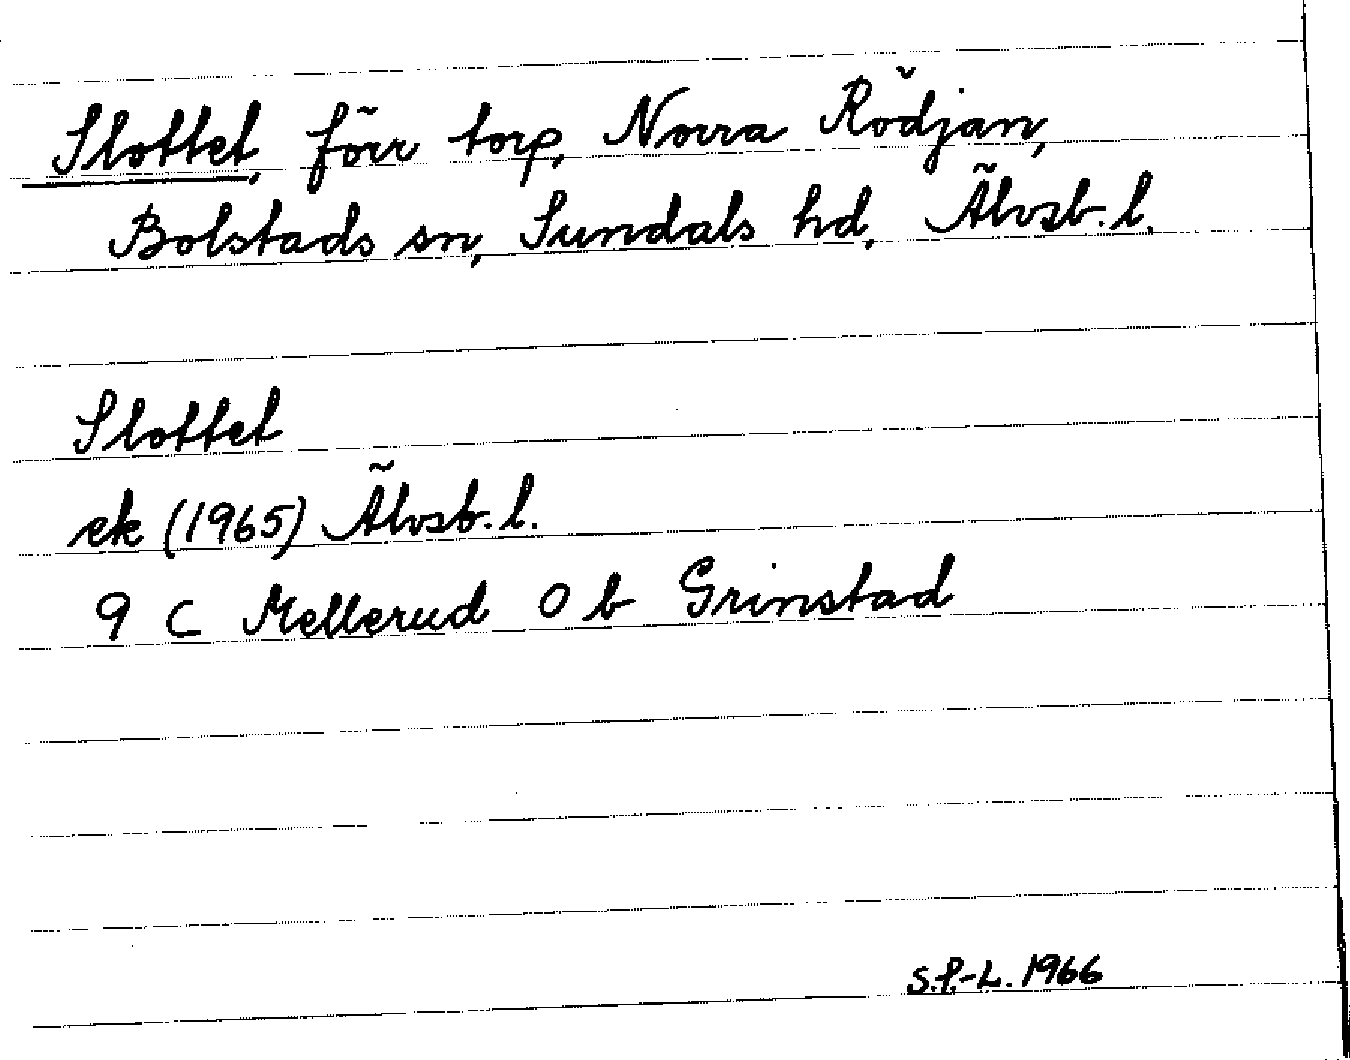 Slottet, förr torp, Norra Rödjan,
Bolstads sn, Sundals hd, Älvsb. l.
Slottet
ek (1965) Älvsb. l.
9 C Mellerud O b Grinstad
S.P.-L. 1966